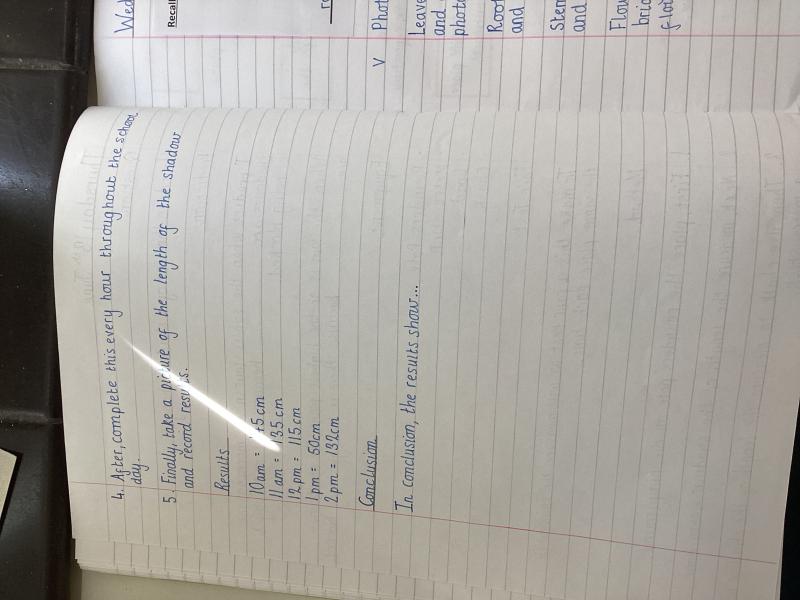 4. After, complete this every hour throughout the school
day.
5. Finally, take a picture of the length of the shadow
and record results.
Results
10am = 45cm
11am = 135cm
12pm = 115cm
1pm = 50cm
2pm = 132cm
Conclusion
In conclusion, the results show...
Wed
Recall
V Phot
Leave
and
photo
Root
and
Stem
and
Flow
brig
flo